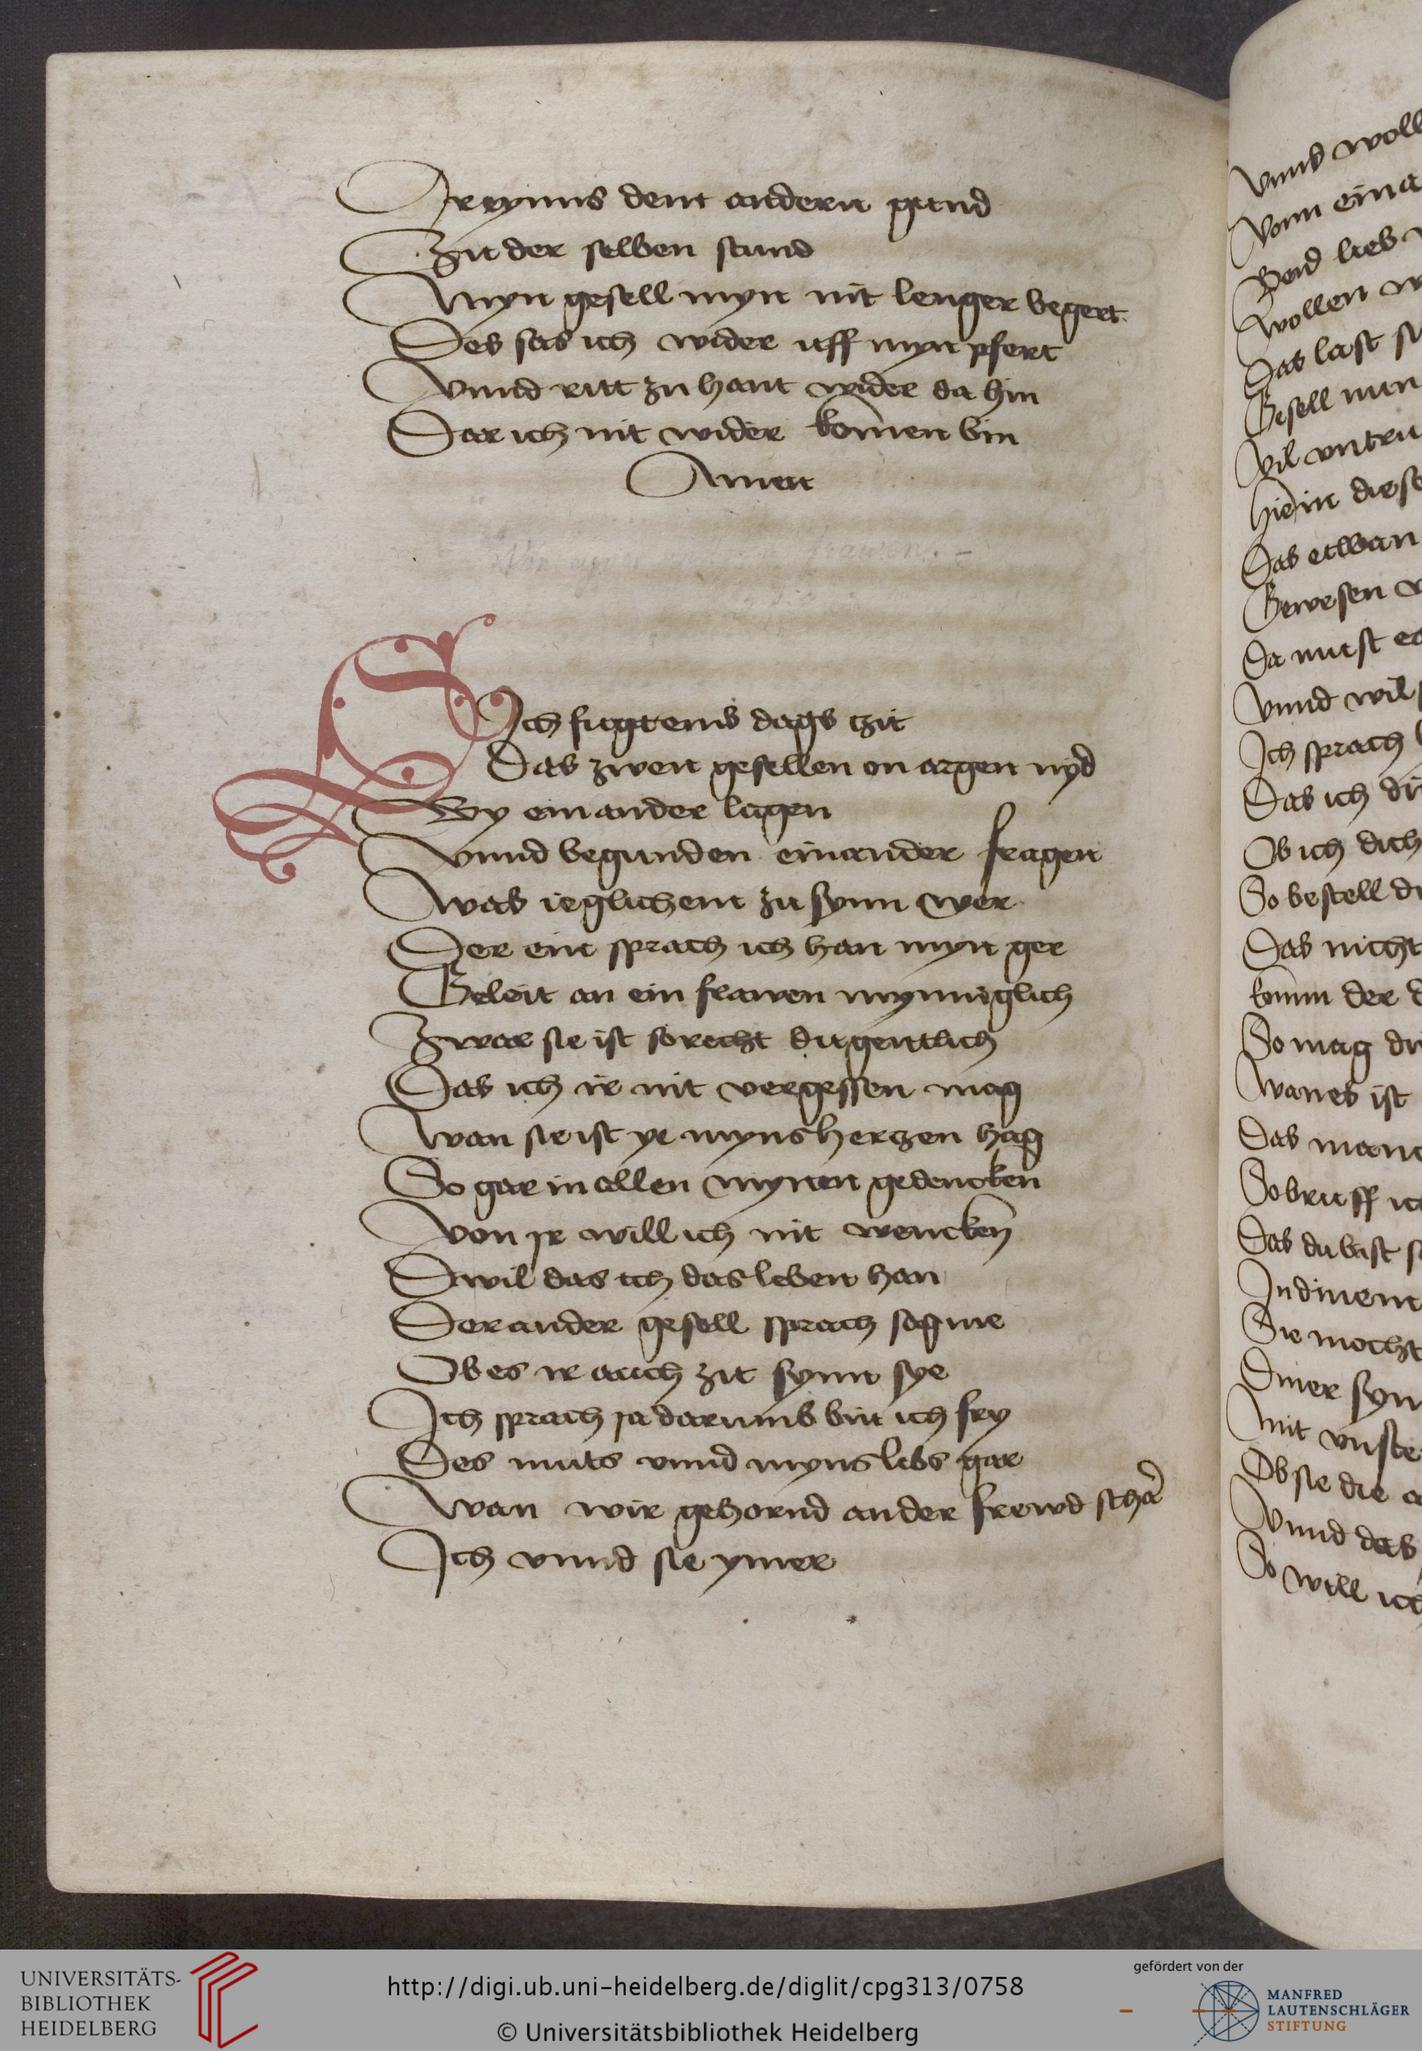 Ir eynns dem andern gund
Zu der selben stund
Myn gesell myn nit lenger begert
Des sas ich wider uff myn pfert
Vnnd ritt zu hant wider da hin
Dar ich nit wider komen bin
Amen
frawen.
Sich fugt eins dags tzit
Das zwen gesellen on argen nyd
By ein ander lagen
Vnnd begunden einander fragen
Was ieglichem zu synn wer
Der ein sprach ich han myn ger
Geleit an ein frawen mynniglich
Zwar sie ist so recht dugentlich
Das ich ir nit vergessen mag
Wan sie ist ye myns hertzen hag
So gar in allen mynen gedencken
Von jr will ich nit wencken
Dwil das ich das leben han
Der ander gesell sprach sag me
Ob es ir auch zu synn sye
Ich sprach ja darumb bin ich fry
Des muts vnnd myns libs gar
Wan wir gehornd an der frewd schar
Ich vnnd sie ymer
Vnnd woll
Vonn eina
Beid lieb
Wollen w
Das last
Gesell nun
Vil vntru
Hie in diese
Das etwan
Gewesen v
Da must
Vnnd wil
Ich sprach
Das ich di
Ob ich dich
So bestell di
Das nicht
komm der d
So mag di
Wan es ist
Das man
So bruff ic
Das du bist s
In dinem
Die mocht
Diner syn
Mit vnste
Ob sie die
Vnnd das
So will ich
UNIVERSITÄTS-
BIBLIOTHEK
HEIDELBERG
http://digi.ub.uni-heidelberg.de/diglit/cpg313/0758
© Universitätsbibliothek Heidelberg
gefördert von der
MANFRED
LAUTENSCHLÄGER
STIFTUNG